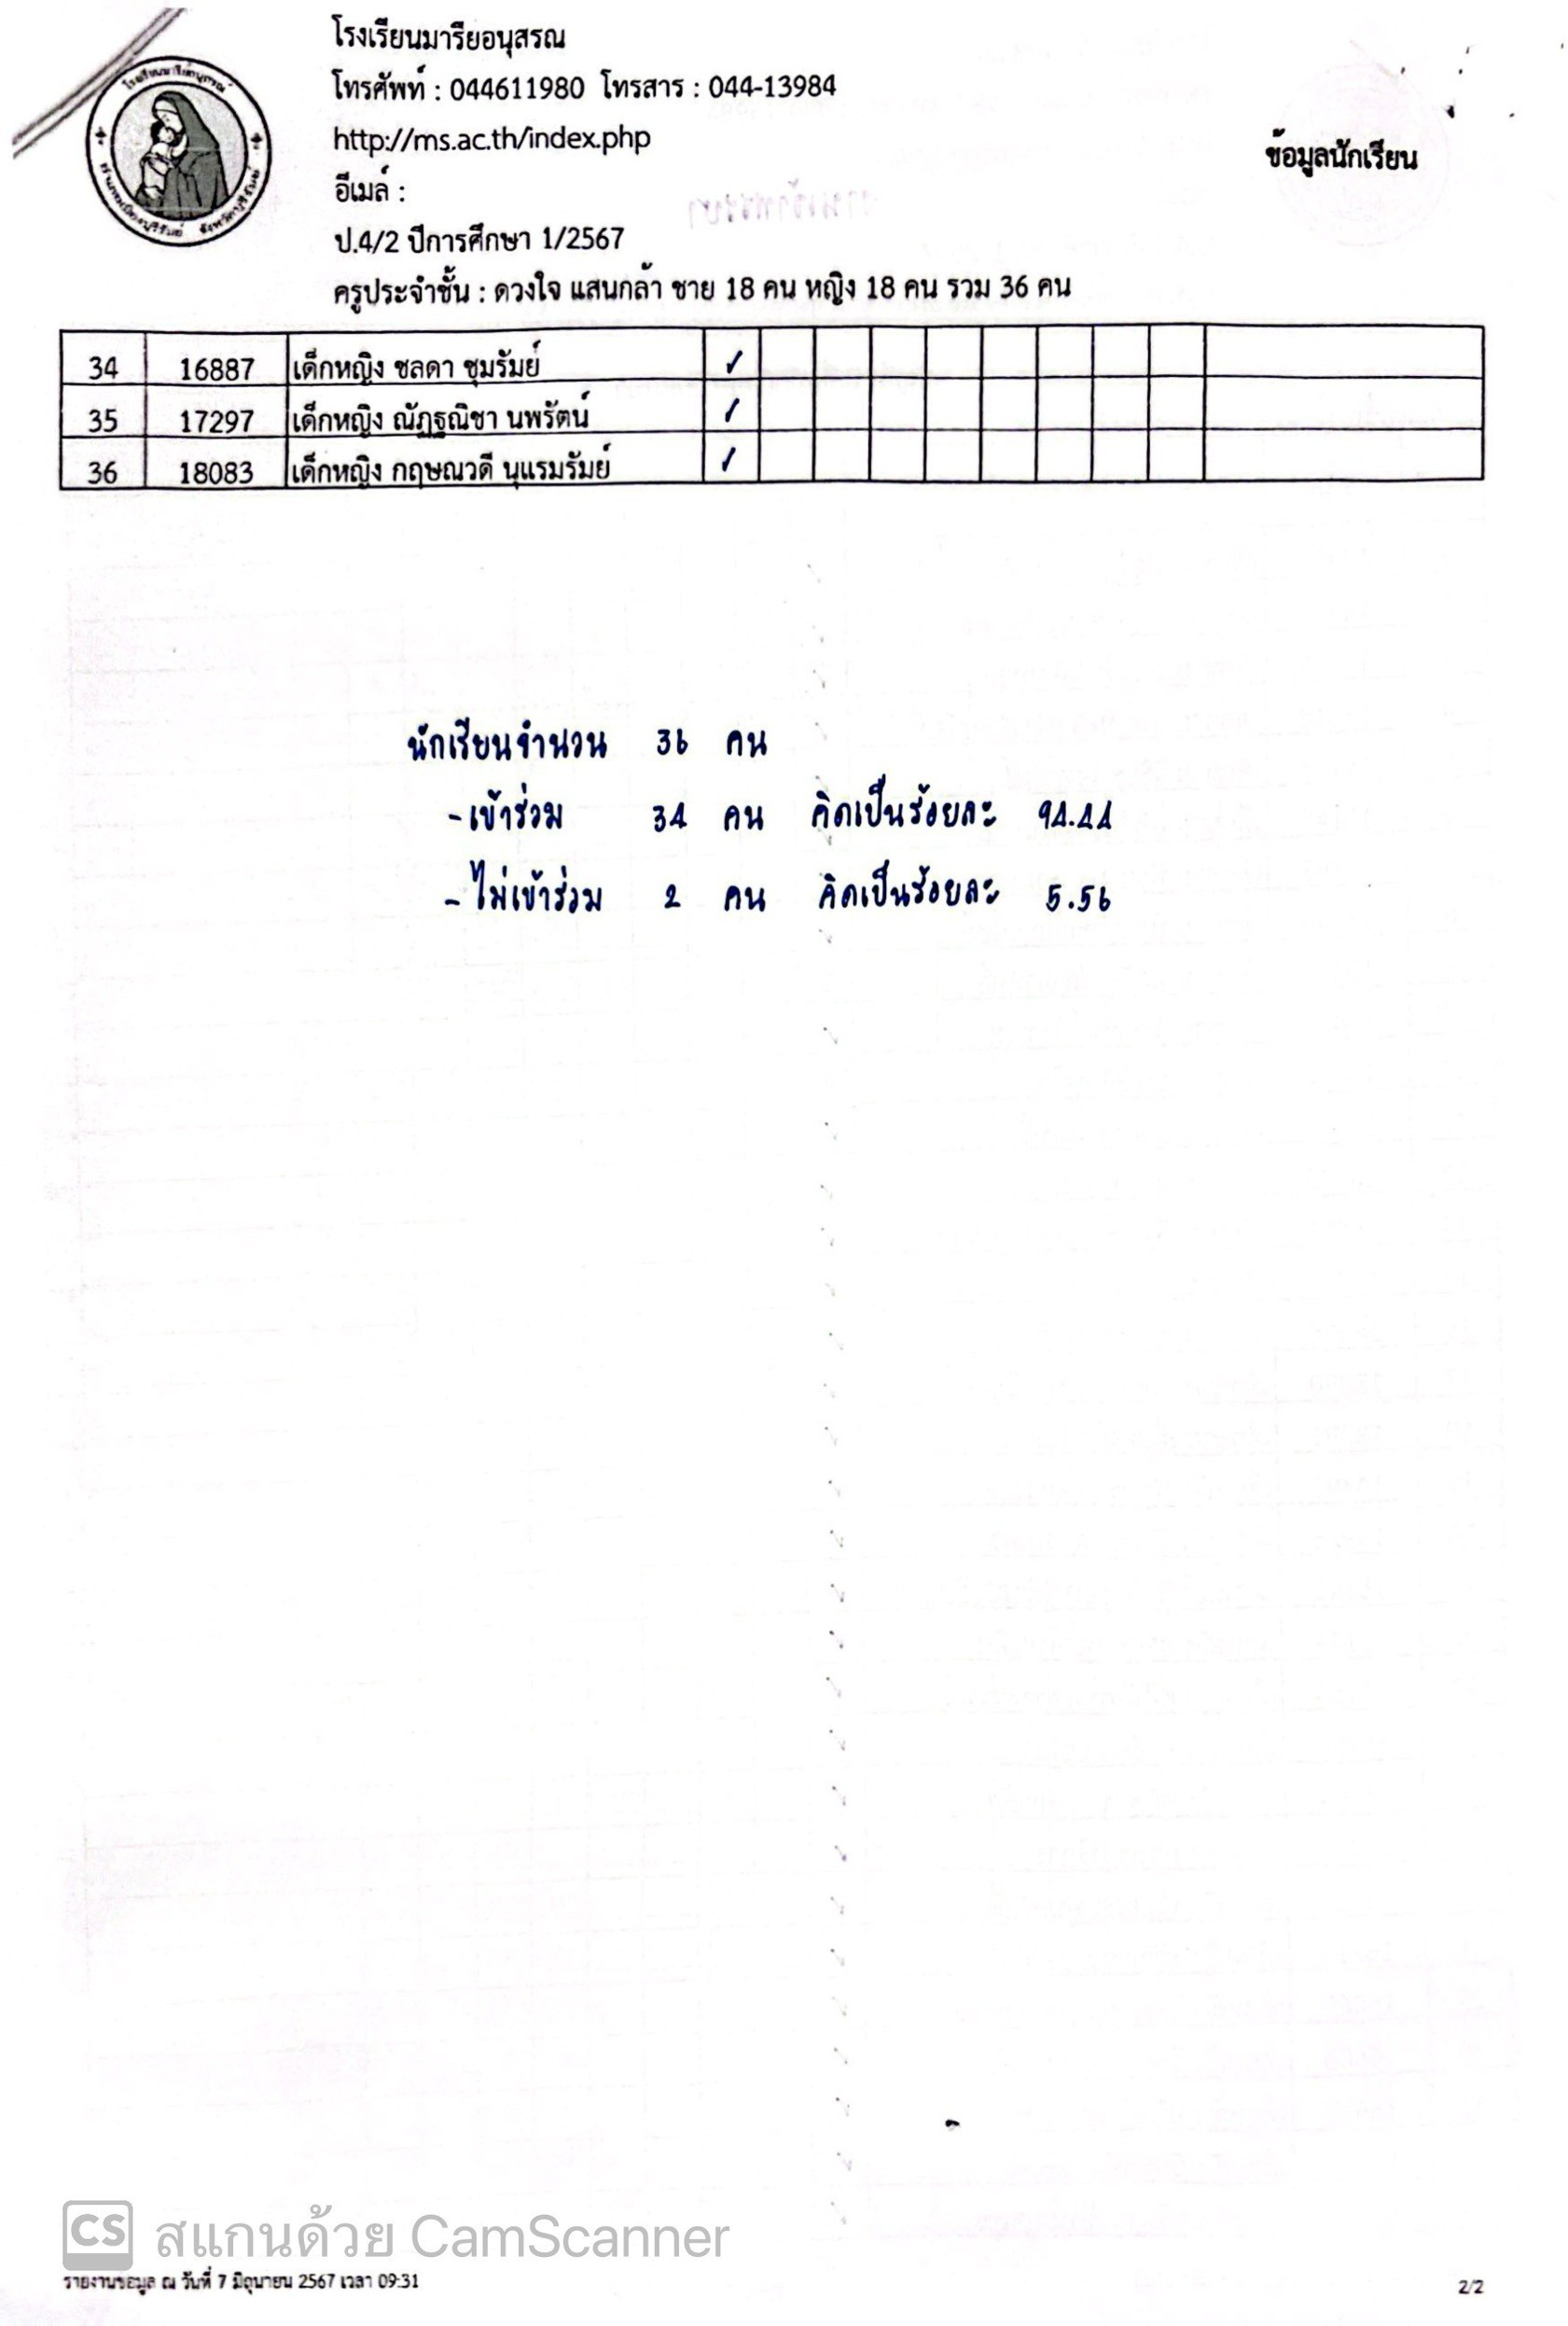 โรงเรียนมารียอนุสรณ
โทรศัพท์ : 044611980 โทรสาร : 044-13984
http://ms.ac.th/index.php
ข้อมูลนักเรียน
อีเมล์ :
ป.4/2 ปีการศึกษา 1/2567
ครูประจำชั้น : ดวงใจ แสนกล้า ชาย 18 คน หญิง 18 คน รวม 36 คน
34 16887 เด็กหญิง ชลดา ชุมรัมย์ ✓
35 17297 เด็กหญิง ณัฏฐณิชา นพรัตน์ ✓
36 18083 เด็กหญิง กฤษณวดี นุแรมรัมย์ ✓
นักเรียนจำนวน 36 คน
- เข้าร่วม 34 คน คิดเป็นร้อยละ 94.44
- ไม่เข้าร่วม 2 คน คิดเป็นร้อยละ 5.56
CS สแกนด้วย CamScanner
รายงานข้อมูล ณ วันที่ 7 มิถุนายน 2567 เวลา 09:31
2/2